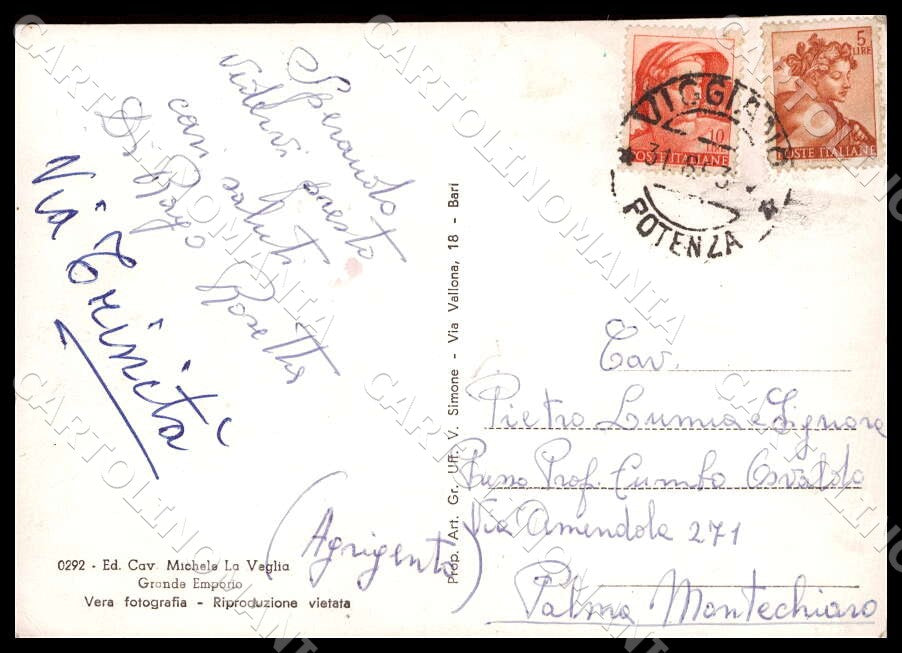 Sperando
vedervi presto
cari saluti
Rosetta
Via Trinità
(Agrigento)
0292 - Ed. Cav. Michele La Veglia
Grande Emporio
Vera fotografia - Riproduzione vietata
Prop. Art. Gr. Uff. V. Simone - Via Vallona, 18 - Bari
10
LIRE
POSTE ITALIANE
5
LIRE
POSTE ITALIANE
VIGGIANO
POTENZA
Cav.
Pietro Lumia e Signora
Presso Prof. Cumbo Osvaldo
Via Amendola 271
Palma Montechiaro
CARTOLINOMANIA